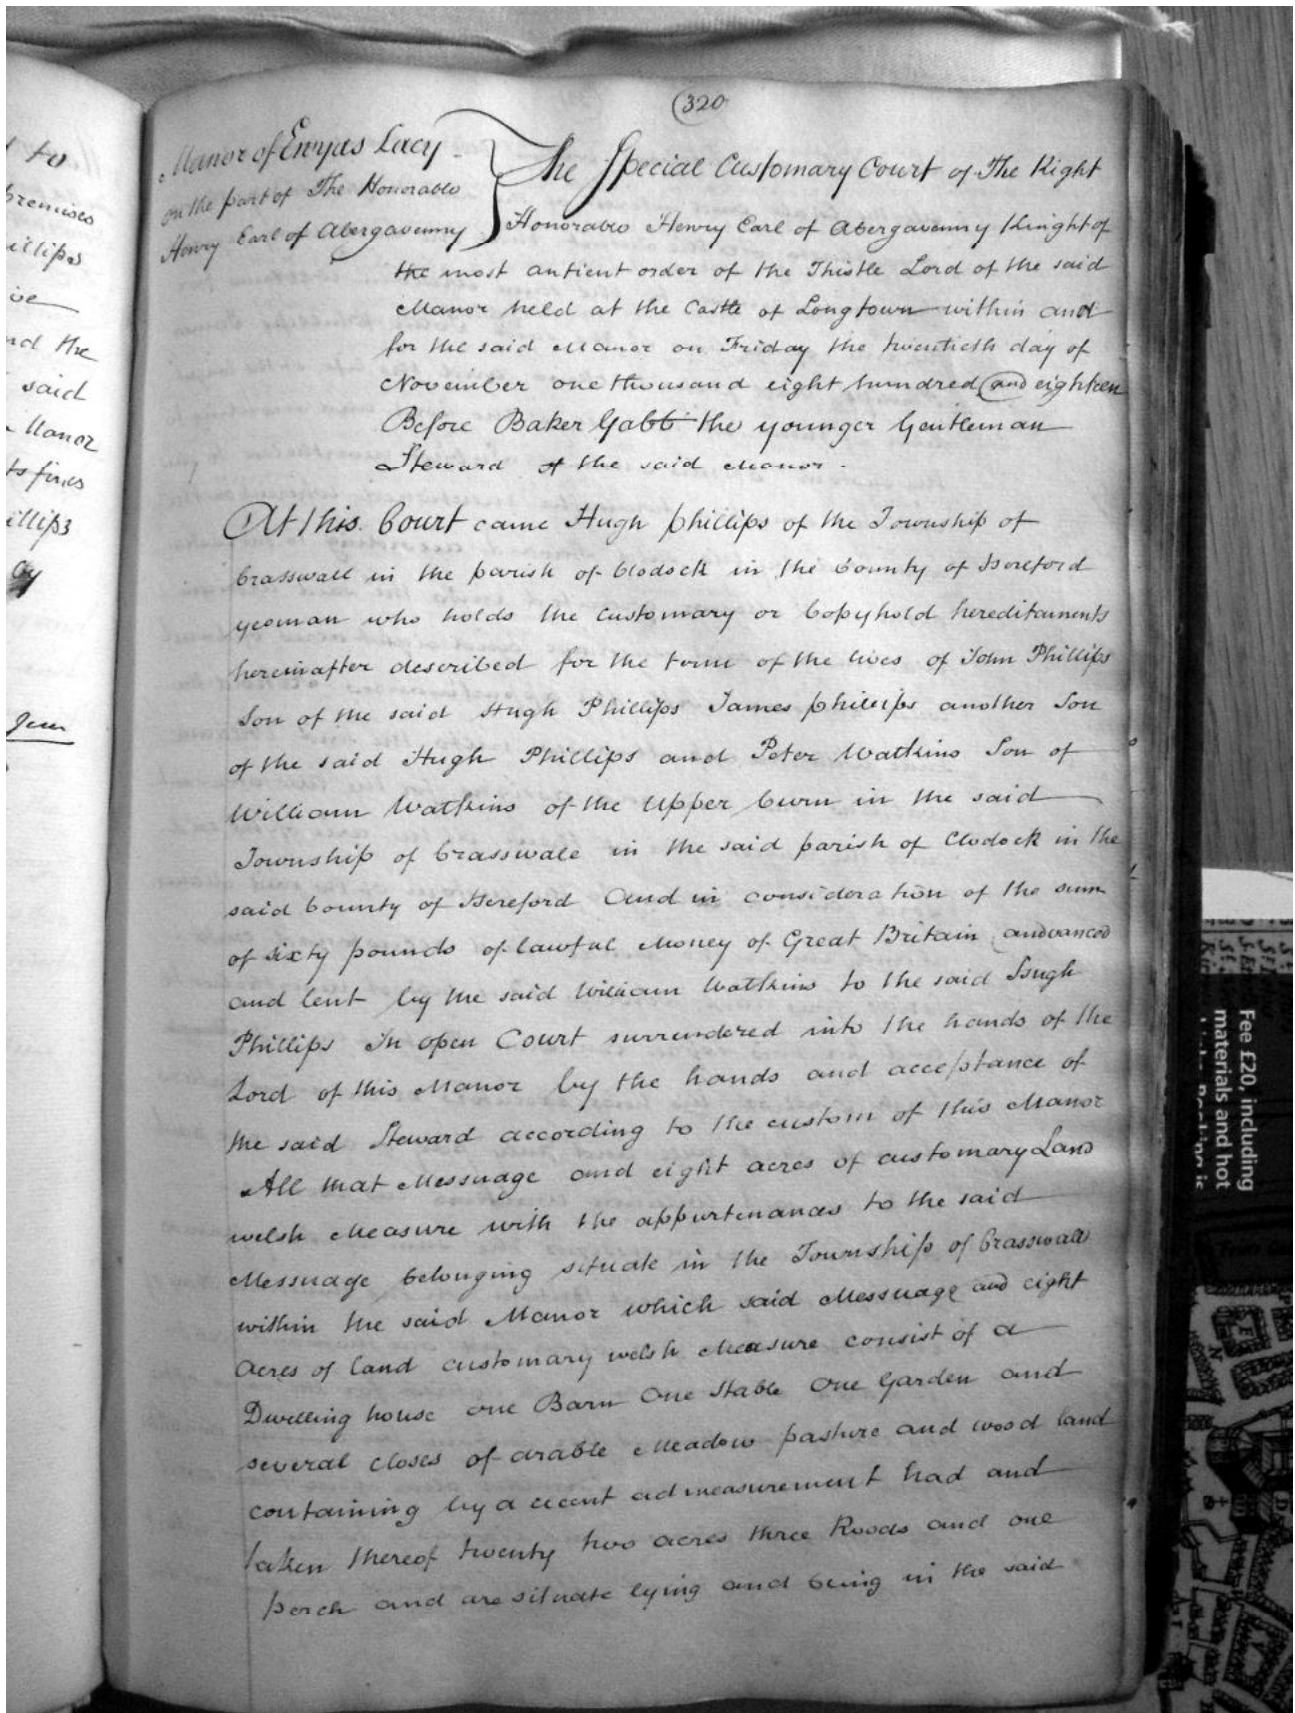 (320
Manor of Ewyas Lacy
on the part of The Honorable
Henry Earl of Abergavenny
The Special Customary Court of The Right
Honorable Henry Earl of Abergavenny Knight of
the most antient order of the Thistle Lord of the said
Manor held at the Castle of Longtown within and
for the said Manor on Friday the twentieth day of
November one thousand eight hundred and eighteen
Before Baker Gabb the younger Gentleman
Steward of the said Manor.
At this Court came Hugh Phillips of the Township of
Crasswall in the parish of Clodock in the County of Hereford
yeoman who holds the customary or Copyhold hereditaments
hereinafter described for the term of the lives of John Phillips
Son of the said Hugh Phillips James Phillips another Son
of the said Hugh Phillips and Peter Watkins Son of
William Watkins of the Upper Cwm in the said
Township of Crasswale in the said parish of Clodock in the
said County of Hereford And in consideration of the sum
of sixty pounds of lawful Money of Great Britain andvanced
and lent by the said William Watkins to the said Hugh
Phillips In open Court surrendered into the hands of the
Lord of this Manor by the hands and acceptance of
the said Steward according to the custom of this Manor
All that Messuage and eight acres of customary Land
welsh Measure with the appurtenances to the said
Messuage belonging situate in the Township of Crasswall
within the said Manor which said Messuage and eight
acres of land customary welsh Measure consist of a
Dwelling house one Barn One Stable One Garden and
several closes of arable Meadow pasture and wood land
containing by a recent admeasurement had and
taken thereof twenty two acres three Roods and one
perch and are situate lying and being in the said
to
premises
illips
nd the
said
Manor
ts fines
illips
Fee £20, including
materials and hot